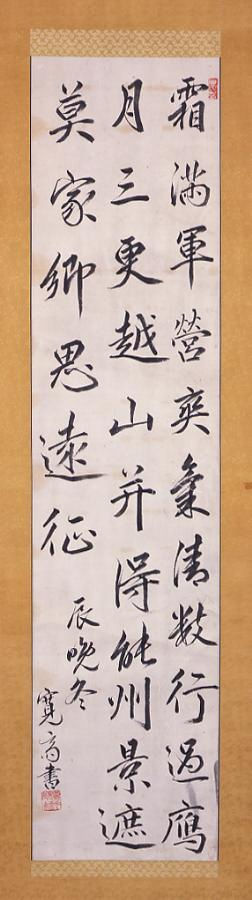 霜满軍營爽氣清数行過鴈
月三更越山并得能州景遮
莫家郷思遠征
辰晩冬
寛高書